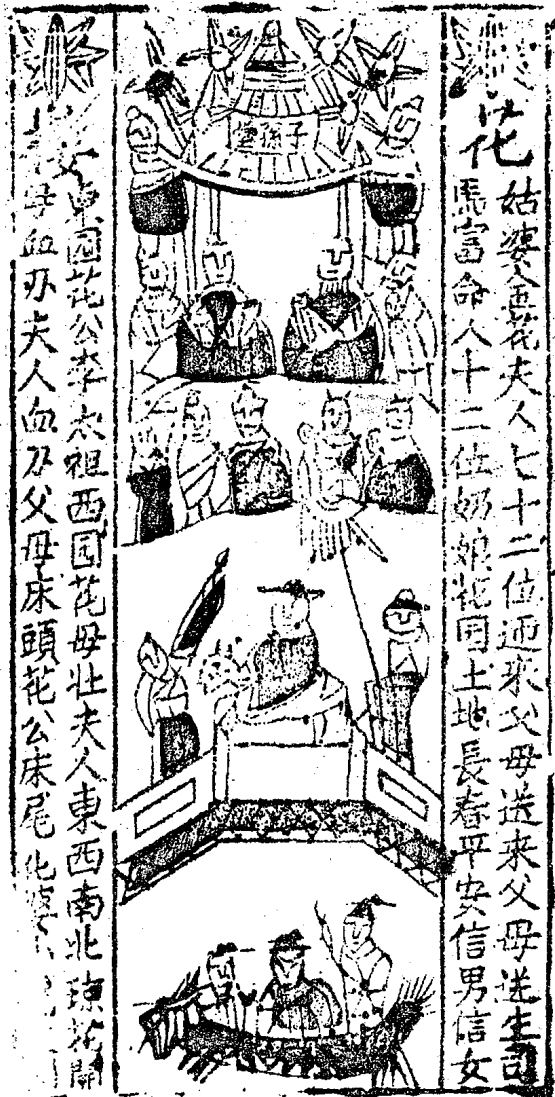 花
姑婆金花夫人七十二位迎來父母送来父母送生司
馬富命人十二位奶娘花园土地長春平安信男信女
子孫堂
東园花公李太祖西园花母壯夫人東西南北琼花開
母血刃夫人血刃父母床頭花公床尾花婆